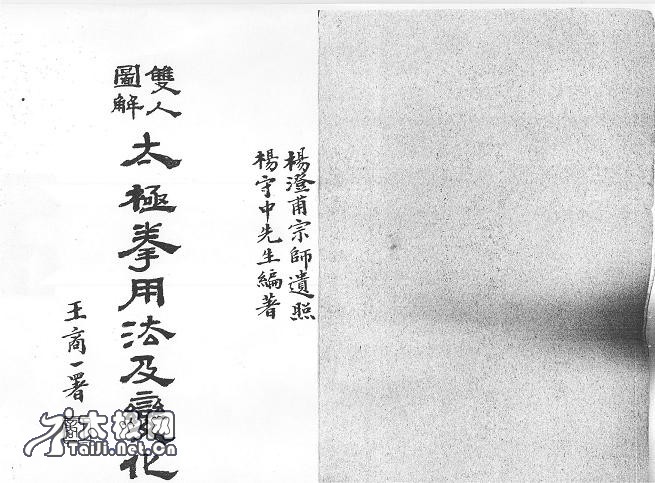 楊澄甫宗師遺照
楊守中先生編著
雙人
圖解
太極拳用法及變化
王商一署
太极网
Taiji.net.cn